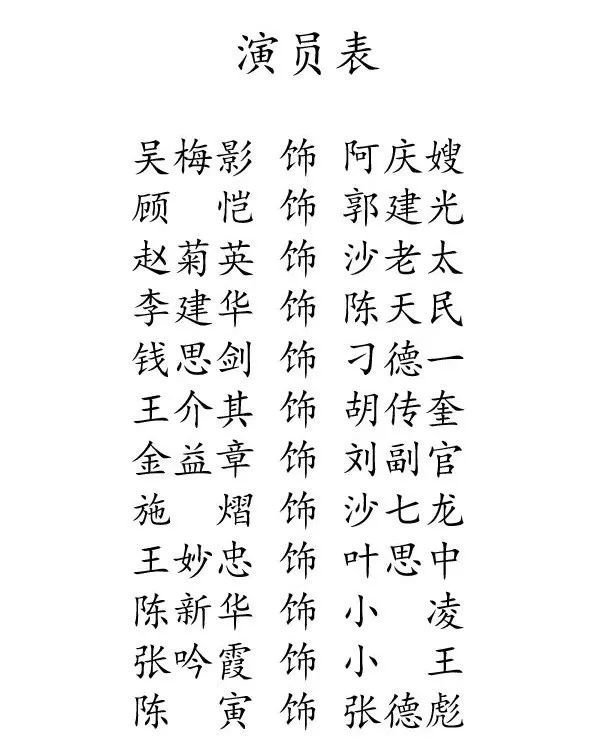 演员表
吴梅影 饰 阿庆嫂
顾　恺 饰 郭建光
赵菊英 饰 沙老太
李建华 饰 陈天民
钱思剑 饰 刁德一
王介其 饰 胡传奎
金益章 饰 刘副官
施　熠 饰 沙七龙
王妙忠 饰 叶思中
陈新华 饰 小　凌
张吟霞 饰 小　王
陈　寅 饰 张德彪